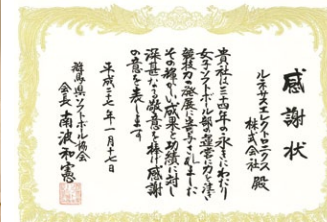 感謝状
ルネサスエレクトロニクス
株式会社 殿
貴社は三四年の永きにわたり
女子ソフトボール部の運営に力を注ぎ
競技力の発展に寄与されました
その輝かしい成果と功績に対し
深甚なる敬意を捧げ感謝
の意を表します
平成二十七年一月十七日
群馬県ソフトボール協会
会長 南波和憲